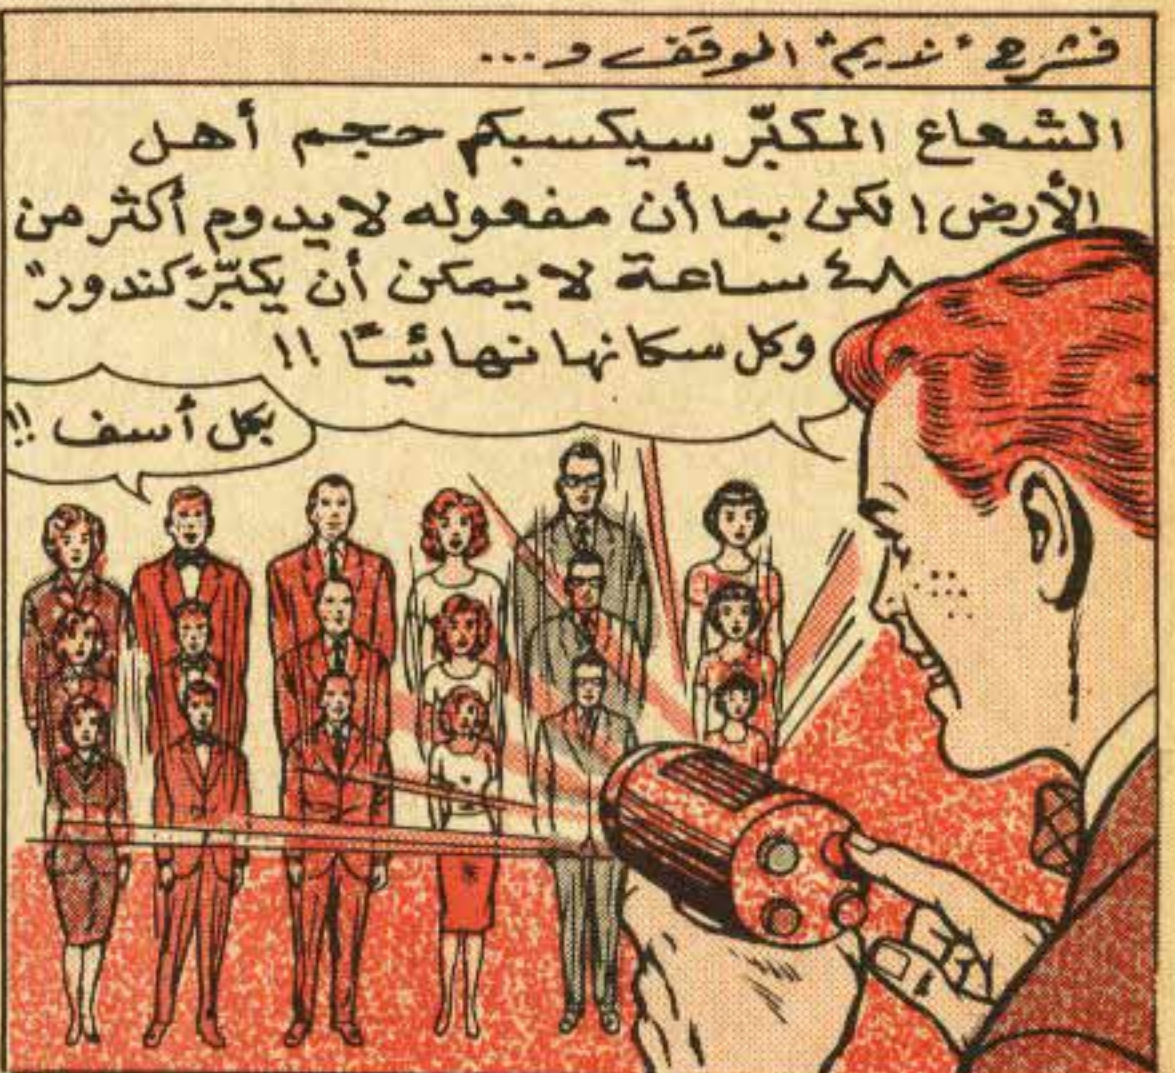 فشرح "نديم" الموقف و...
الشعاع المكبّر سيكسبكم حجم أهل
الأرض! لكن بما أن مفعوله لا يدوم أكثر من
٤٨ ساعة لا يمكن أن يكبّر "كندور"
وكل سكانها نهائيـًا !!
بكل أسف !!